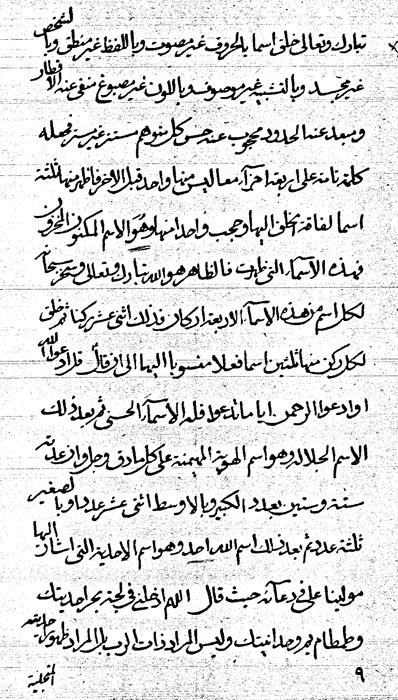 تبارك وتعالى خلق اسما بالحروف غير مصوت وباللفظ غير منطق وبالشخص
غير مجسد وبالتشبيه غير موصوف وباللون غير مصبوغ منفى عنه الاقطار
ومبعد عنه الحدود محجوب عنه حس كل متوهم مستتر غير مستر فجعله
كلمة تامة على اربعة اجزآء معا ليس منها واحد قبل الاخر فاظهر منها ثلثة
اسما لفاقة الخلق اليها وحجب واحدا منها وهو الاسم المكنون المخزون
فهذه الاسمآء التى ظهرت فالظاهر هو الله تبارك وتعالى وسخر سبحانه
لكل اسم من هذه الاسمآء الاربعة اركان فذلك اثنى عشر ركنا ثم خلق
لكل ركن منها ثلثين اسما فعلا منسوبا اليها الى ان قال قل ادعوا الله
او ادعوا الرحمن ايا ما تدعوا فله الاسمآء الحسنى ثم بعد ذلك
الاسم الجلالة وهو اسم الهوية المهيمنة على كل مادق وجل وان عدته
ستة وستين بعدد الكبير وبالاوسط اثنى عشر عدد وبالصغير
ثلثة عدد ثم بعد ذلك اسم الله احد وهو اسم الاحدية التى اشار اليها
مولينا على فى دعآئه حيث قال اللهم ادخلنى فى لجة بحر احديتك
وطمطام يم وحدانيتك وليس المراد ذات الرب بل المراد ظهور
المتجلية
٩